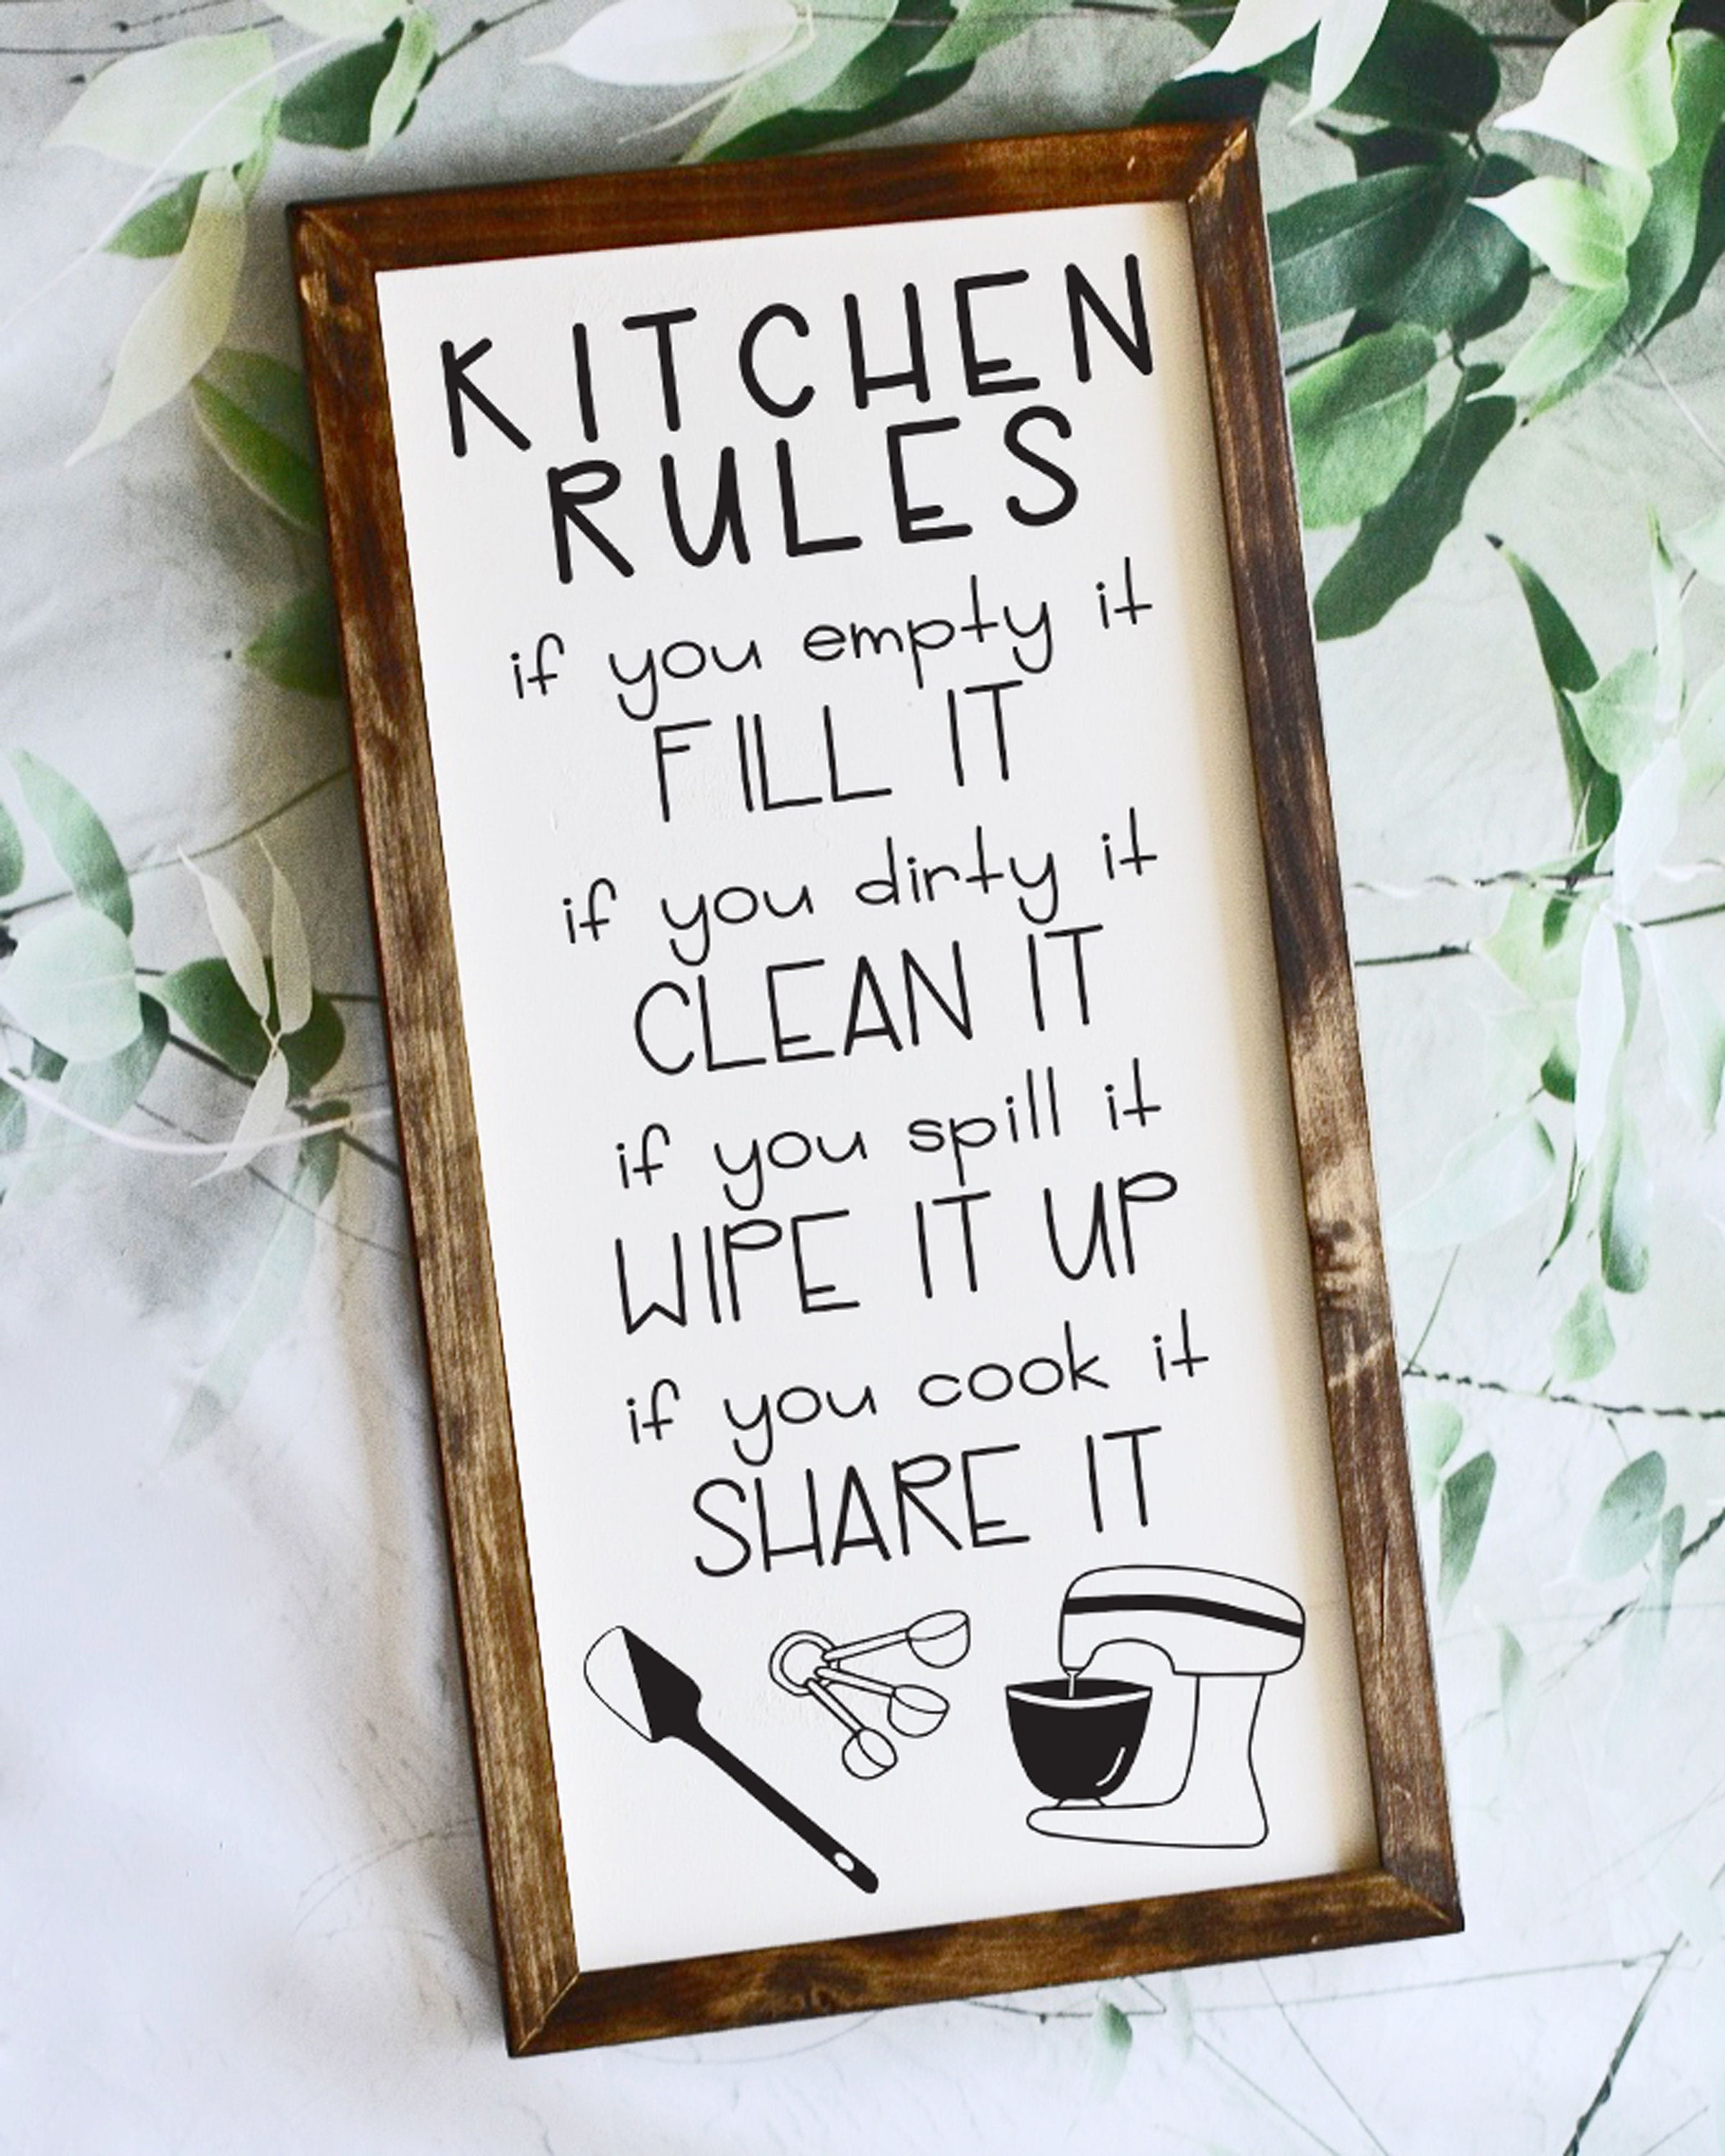 KITCHEN
RULES
if you empty it
FILL IT
if you dirty it
CLEAN IT
if you spill it
WIPE IT UP
if you cook it
SHARE IT